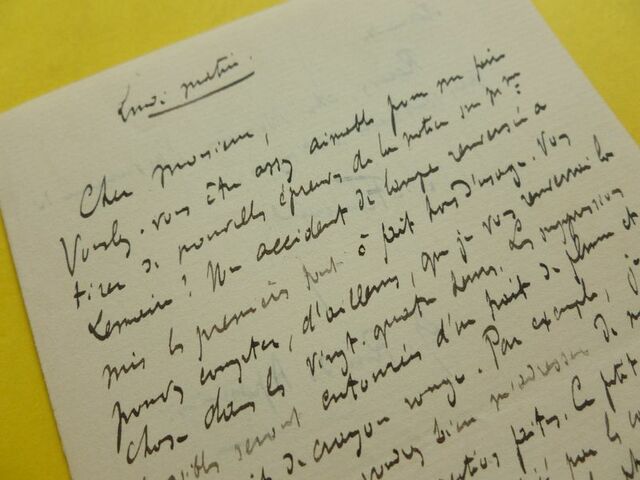 Lundi matin.
Cher Monsieur,
Voulez-vous être assez aimable pour me faire
tirer de nouvelles épreuves de la notice sur Mme
Lemaire? Un accident de lampe renversée a
mis les premières tout à fait hors d'usage. Vous
pouvez compter, d'ailleurs, que je vous renverrai la
chose dans les vingt-quatre heures. Les suppressions
seront entourées d'un trait de plume et
de crayon rouge. Par exemple, je
bien m'adresser
faites. Ce petit
par les